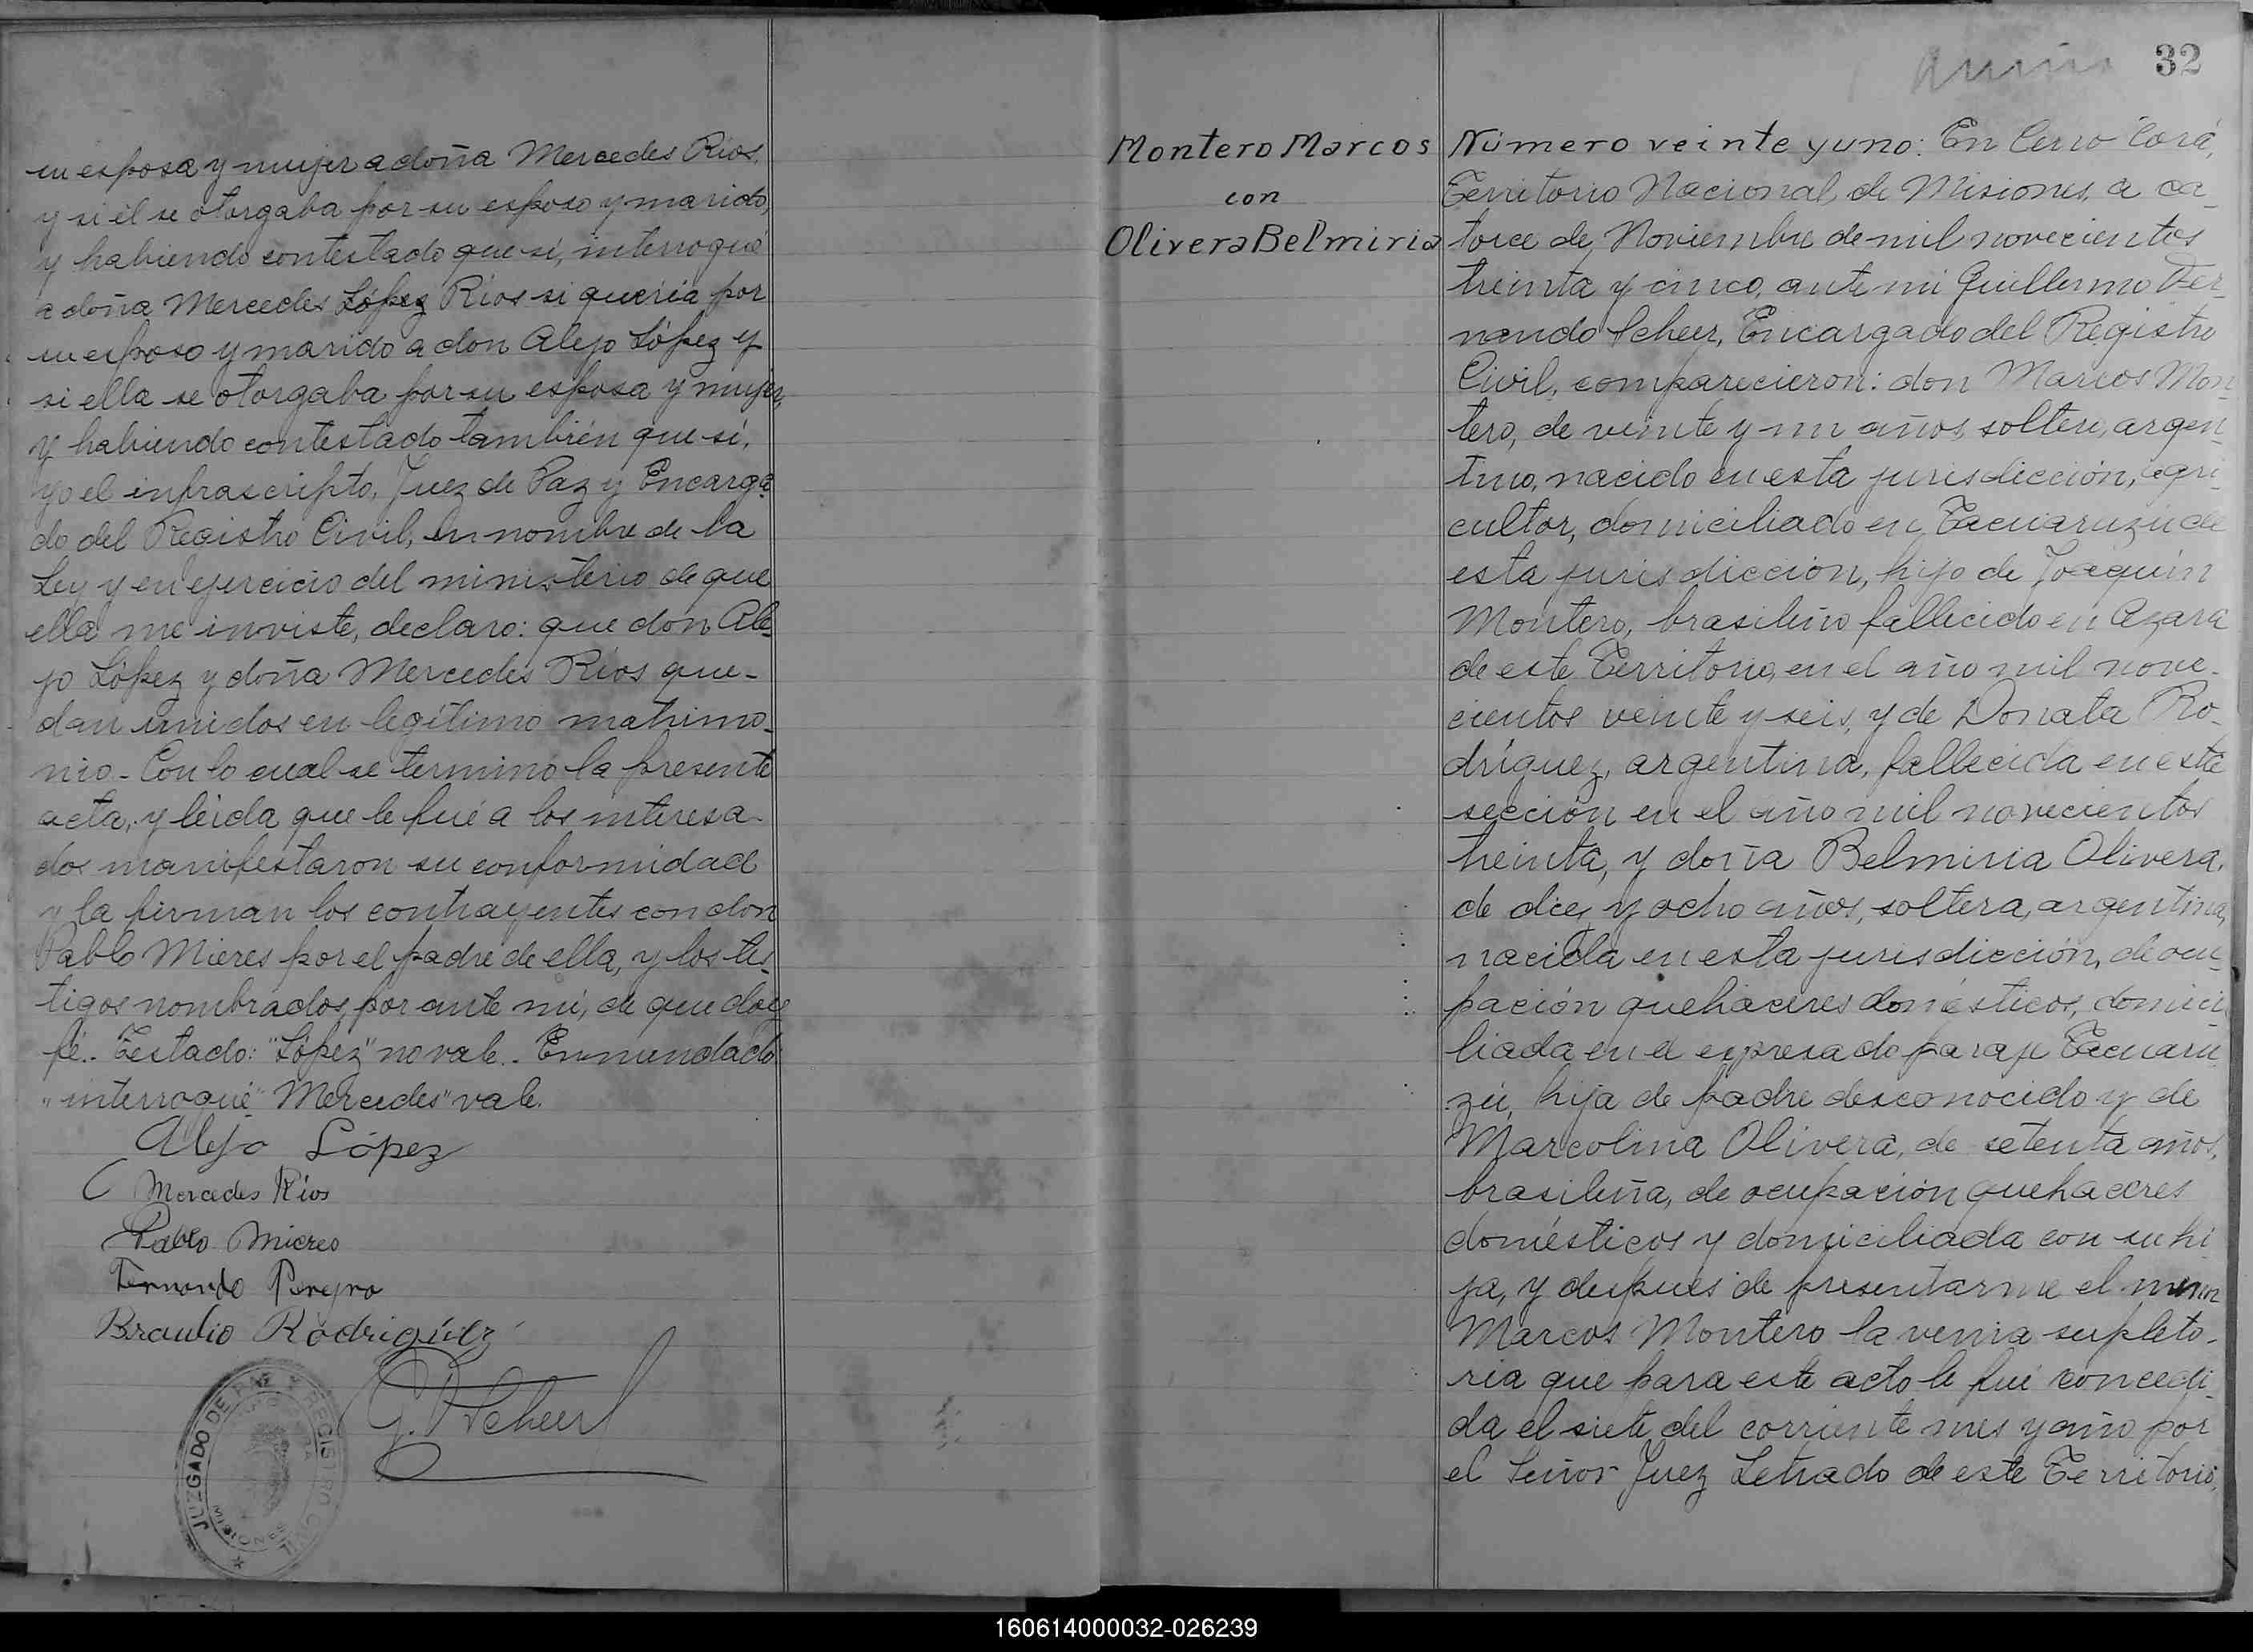 su esposa y mujer a doña Mercedes Ríos,
y si él se otorgaba por su esposo y marido,
y habiendo contestado que sí, interrogué
a doña Mercedes López Ríos si quería por
su esposo y marido a don Alejo López y
si ella se otorgaba por su esposa y mujer,
y habiendo contestado también que sí,
yo el infrascripto, Juez de Paz y Encarga
do del Registro Civil, en nombre de la
Ley y en ejercicio del ministerio de que
ella me inviste, declaro: que don Ale-
jo López y doña Mercedes Ríos que-
dan unidos en legítimo matrimo-
nio.- Con lo cual se terminó la presente
acta, y leída que le fué a los interesa-
dos manifestaron su conformidad
y la firman los contrayentes con don
Pablo Mieres por el padre de ella, y los tes-
tigos nombrados, por ante mí, de que doy
fé.. Testado: "López" no vale.. Enmendado
"interrogué" Mercedes" vale.
Alejo López
Mercedes Ríos
Pablo Mieres
Fernando Pereyra
Braulio Rodriguez
G. F. Scheer
JUZGADO DE PAZ Y REGISTRO CIVIL
32
Montero Marcos
con
Olivera Belmiria
Número veinte y uno: En Cerro Corá,
Territorio Nacional de Misiones, a ca-
torce de Noviembre de mil novecientos
treinta y cinco, ante mi Guillermo Fer-
nando Scheer, Encargado del Registro
Civil, comparecieron: don Marcos Mon-
tero, de veinte y un años, soltero, argen-
tino, nacido en esta jurisdicción, agri-
cultor, domiciliado en Tacuaruzú de
esta jurisdicción, hijo de Joaquín
Montero, brasileño fallecido en Azara
de este Territorio, en el año mil nove-
cientos veinte y seis, y de Donata Ro-
dríguez, argentina, fallecida en esta
sección en el año mil novecientos
treinta, y doña Belmiria Olivera,
de diez y ocho años, soltera, argentina,
nacida en esta jurisdicción, de ocu-
pación quehaceres domésticos, domici-
liada en el expresado paraje Tacuaru-
zú, hija de padre desconocido y de
Marcolina Olivera, de setenta años,
brasileña, de ocupación quehaceres
domésticos y domiciliada con su hi-
ja, y después de presentarme el menor
Marcos Montero la venia supleto-
ria que para este acto le fué concedi-
da el siete del corriente mes y año por
el Señor Juez Letrado de este Territorio,
160614000032-026239